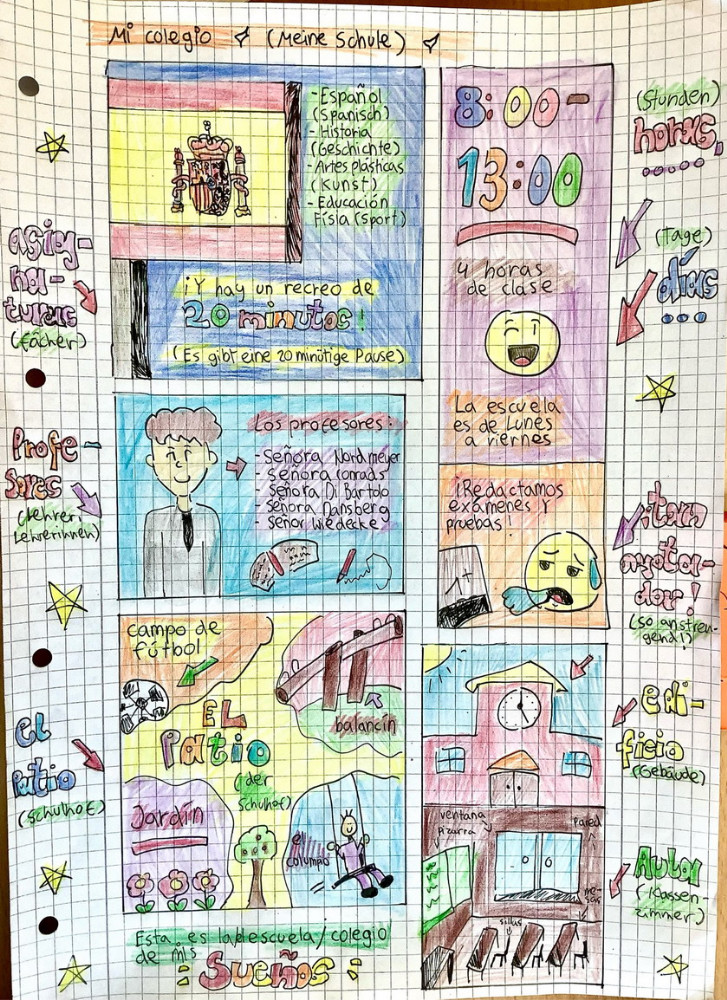 Mi colegio (Meine Schule)
- Español
(Spanisch)
- Historia
(Geschichte)
- Artes plásticas
(Kunst)
- Educación
Físia (Sport)
¡Y hay un recreo de
20 minutos!
(Es gibt eine 20 minütige Pause)
asig-
na-
turas
(Fächer)
8:00-
13:00
4 horas
de clase
La escuela
es de Lunes
a viernes
(Stunden)
horas,
(Tage)
días
Profe-
sores
(Lehrer/
Lehrerinnen)
Los profesores:
- Señora Nordmeyer
- señora Conrads
- Señora Di Bartolo
- Señora Mansberg
- Señor Wedecke
¡Redactamos
exámenes y
pruebas!
1+
¡tan
agota-
dor!
(so anstren-
gend!)
el
Patio
(Schulhof)
campo de
fútbol
balancín
EL
Patio
(der
Schulhof)
Jardín
el
columpio
edi-
ficio
(Gebäude)
ventana
pizarra
pared
me-
sas
sillas
Aula
(Klassen-
zimmer)
Esta es la escuela/colegio
de mis
¡Sueños!